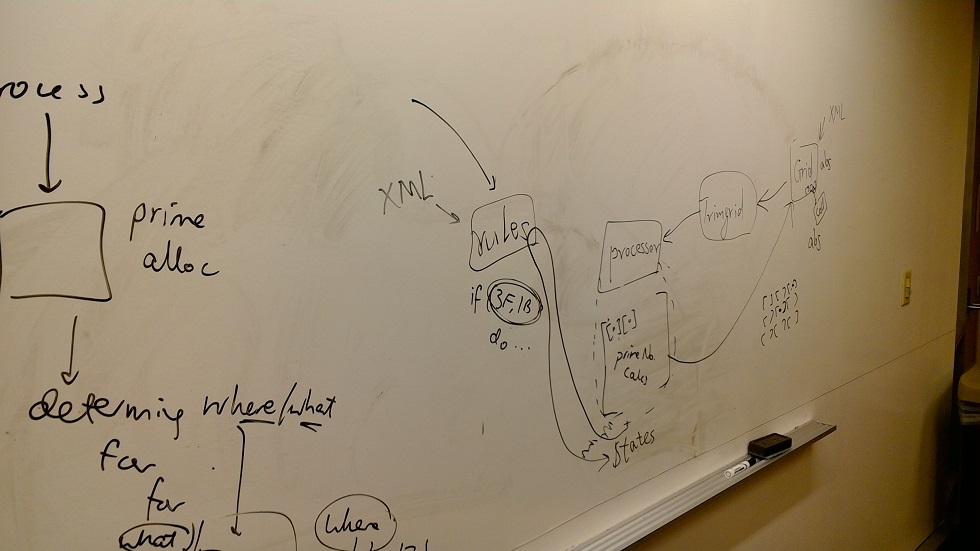 rocess
prime
alloc
determinig where/what
for
for
what
where
XML
rules
if 3F, 1B
do...
processor
[·][·]
prime No.
Calcs
States
Trimgrid
XML
Grid
abs
abs